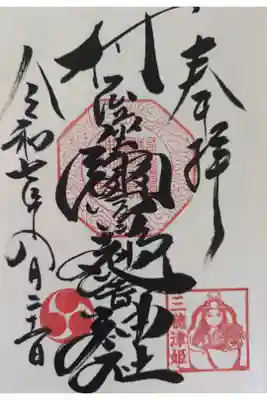 奉拝
村屋坐彌冨都比賣神社
令和七年八月二十
三穂津姫